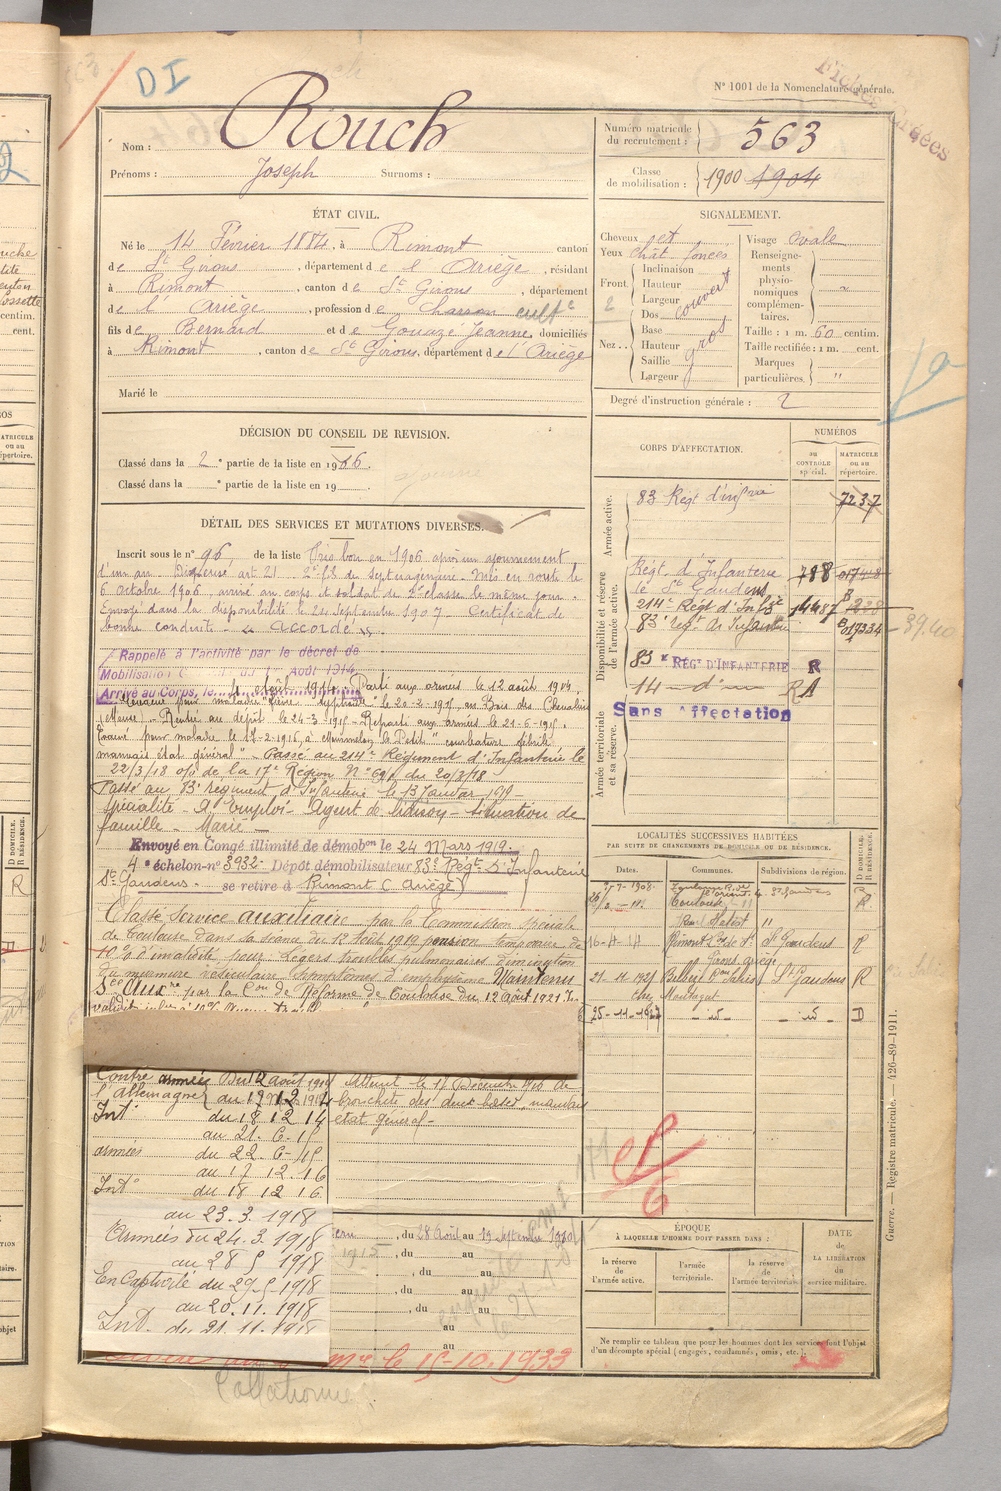 DI
N° 1001 de la Nomenclature générale.
Fiches
Nom : Rouch
Prénoms : Joseph Surnoms :
Numéro matricule du recrutement : 563
Classe de mobilisation : 1900 1904
ÉTAT CIVIL.
Né le 14 Février 1884, à Rimont canton
de St Girons, département de l' Ariège, résidant
à Rimont, canton de St Girons, département
de l' Ariège, profession de charron cultr
fils de Bernard et de Gouazé Jeanne, domiciliés
à Rimont, canton de St Girons, département de l'Ariège
Marié le
SIGNALEMENT.
Cheveux
Yeux chât. foncés
Front. Inclinaison
Hauteur
Largeur
couvert
2
Nez.. Dos
Base
Hauteur
Saillie
Largeur
gros
Visage ovale
Renseignements physionomiques complémentaires.
Taille : 1 m. 60 centim.
Taille rectifiée : 1 m. cent.
Marques particulières. "
Degré d'instruction générale : 2
1a
DÉCISION DU CONSEIL DE REVISION.
Classé dans la 2e partie de la liste en 1906.
Classé dans la e partie de la liste en 19
DÉTAIL DES SERVICES ET MUTATIONS DIVERSES.
Inscrit sous le n° 96 de la liste Pris bon en 1906 après un ajournement
d'un an. Dispensé art 21 2° fils de septuagénaire. Mis en route le
6 octobre 1906, arrivé au corps et soldat de 2e classe le même jour.
Envoyé dans la disponibilité le 24 Septembre 1907 Certificat de
bonne conduite « accordé ».
Rappelé à l'activité par le décret de
Mobilisation du 1 Août 1914
Arrivé au Corps, le 4 Août 1914. Parti aux armées le 12 août 1914.
Evacué pour maladie "fièvre typhoïde" le 20-2-1915, au Bois des Chevaliers
(Meuse). Rentré au dépôt le 24-3-1915 - Reparti aux armées le 21-6-1915.
Evacué pour maladie le 17-2-1916, à Mourmelon le Petit "courbature fébrile
mauvais état général" - Passé au 214e Régiment d'Infanterie le
22/3/18 o/ de la 17e Région N° 691 du 20/3/18
Passé au 83e régiment d'Infanterie le 13 Janvier 1919 -
Spécialité - A Emploi - Agent de liaison - Situation de
famille - Marié -
Envoyé en Congé illimité de démobon le 24 Mars 1919.
4e échelon - n° 3932 - Dépôt démobilisateur 83e Régt d'Infanterie
St Gaudens. - se retire à Rimont (Ariège)
Classé Service auxiliaire par la Commission spéciale
de Toulouse dans sa séance du 12 Août 1919 pension temporaire de
10 % d'invalidité pour légers troubles pulmonaires diminution
du murmure vésiculaire symptômes d'emphysème Maintenu
Sce Auxre par la Con de Réforme de Toulouse du 12 août 1921
CORPS D'AFFECTATION.
NUMÉROS
au CONTRÔLE spécial.
MATRICULE ou au répertoire.
Armée active.
83 Régt d'infrie 7237
Disponibilité et réserve de l'armée active.
Régt d'Infanterie
de St Gaudens 788 017448
214e Régt d'Infie 14487
83e Regt de Infanterie 017334
83e RÉGt D'INFANTERIE R
14 - d° - RA
Armée territoriale et sa réserve.
Sans Affectation
LOCALITÉS SUCCESSIVES HABITÉES
PAR SUITE DE CHANGEMENTS DE DOMICILE OU DE RÉSIDENCE.
Dates. Communes. Subdivisions de région. D DOMICILE. R RÉSIDENCE.
7-1908 Toulouse St Gaudens R
Toulouse R
16-4-14 Rimont St Gaudens R
21-11-1925 St Gaudens R
chez Montagut
25-11-1927 - id - - id - D
Contre l'Allemagne
armées Du 12 août 1914
au 17 12 1914
Intr du 18 12 14
au 21. 6. 15
armées du 22 6-15
au 17 12. 16
Intr du 18 12 16
au 23. 3. 1918
Armées du 24. 3. 1918
au 28 5 1918
En Captivité du 29-5-1918
au 20. 11. 1918
Int. du 21. 11. 1918
Atteint le 17 Décembre 1916 de
bronchite des deux bases, mauvais
état général -
, du 28 Août au 19 Septembre 1910
, du au
, du au
, du au
, du au
au
au
ÉPOQUE
À LAQUELLE L'HOMME DOIT PASSER DANS :
la réserve de l'armée active.
l'armée territoriale.
la réserve de l'armée territoriale.
DATE de LA LIBÉRATION du service militaire.
Ne remplir ce tableau que pour les hommes dont les services font l'objet
d'un décompte spécial (engagés, condamnés, omis, etc.).
le 15-10-1933
Collationné
Guerre. — Registre matricule. — 426-89-1911.